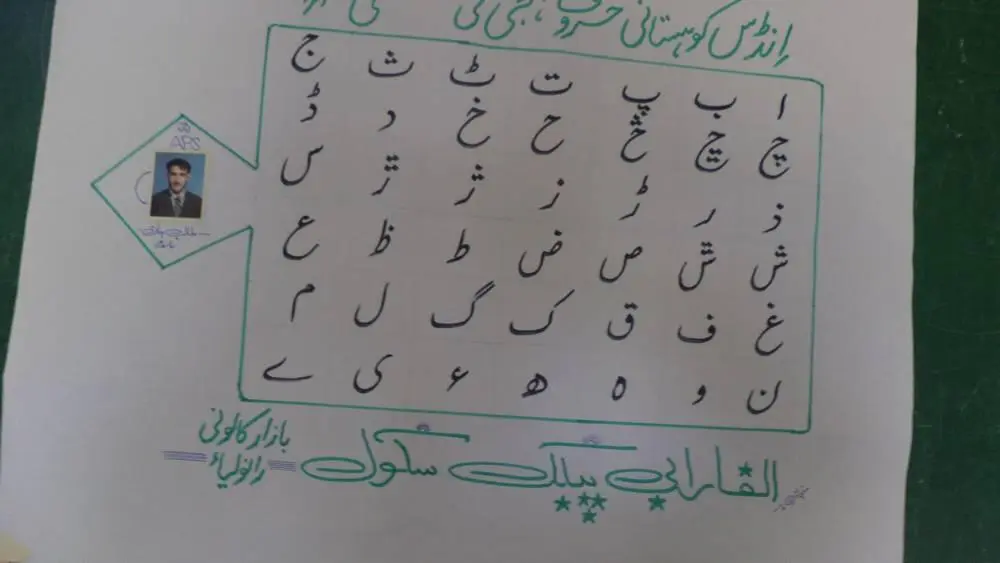 اِنڈس کوہستانی حروف تہجی کی
ا ب پ ت ٹ ث ج
چ ڇ څ ح خ د ڈ
ذ ر ڑ ز ژ ڙ س
ش ݜ ص ض ط ظ ع
غ ف ق ک گ ل م
ن و ہ ھ ء ی ے
APS
الفارابی پبلک سکول
بازار کالونی
رانولیاء